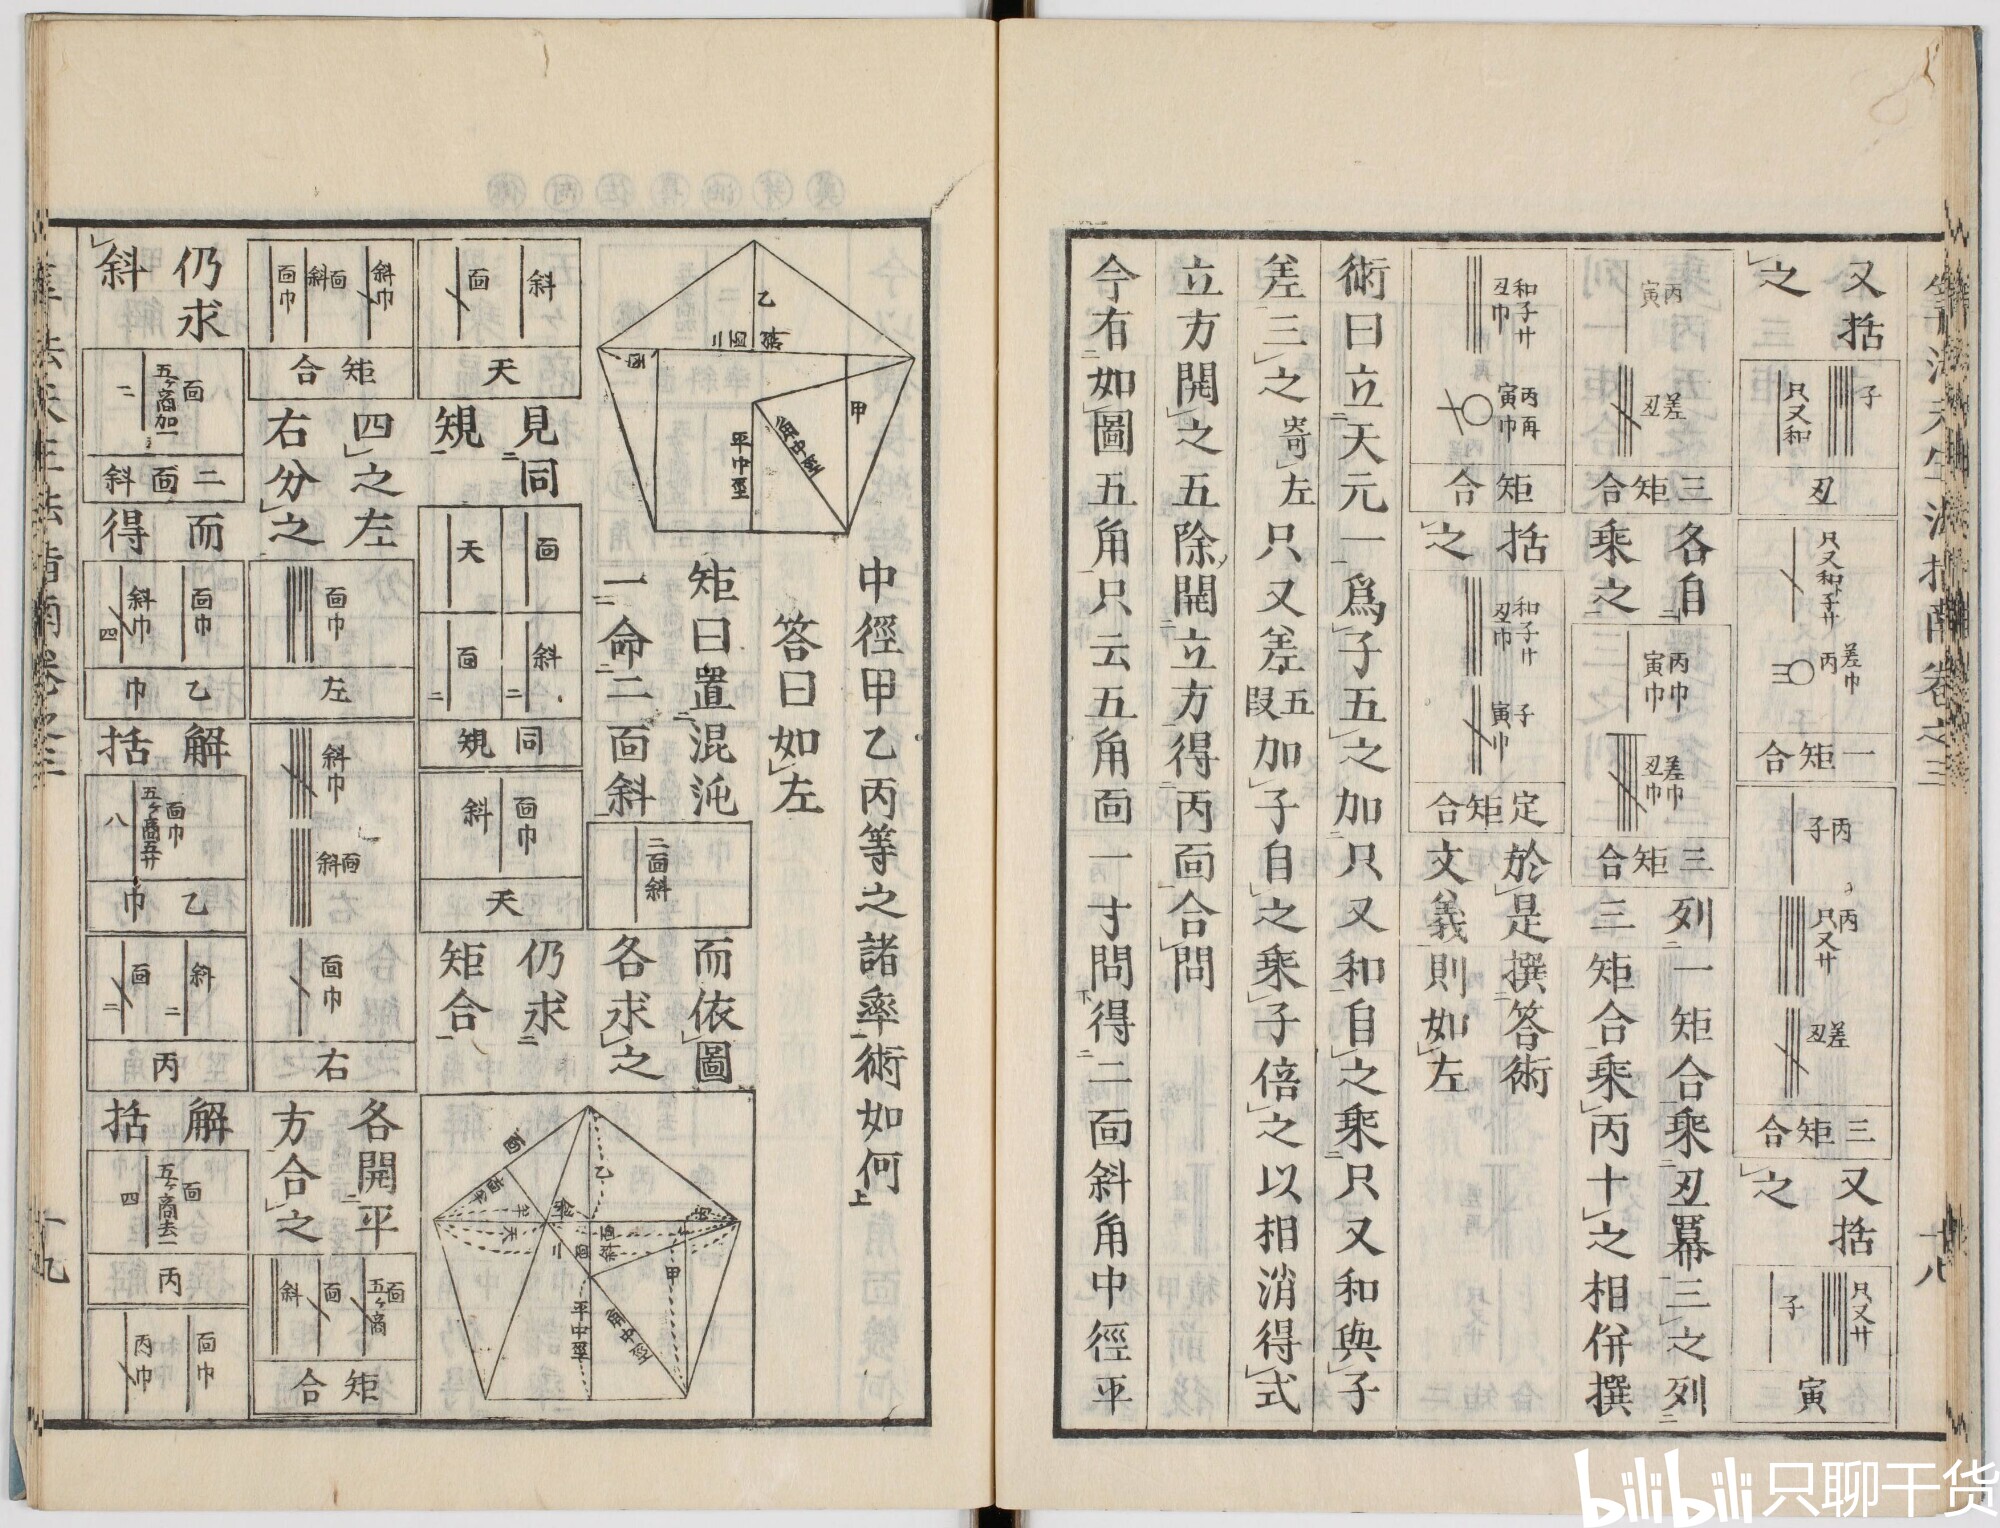 算法天生法指南卷之三
十八
又括
之
子
只又和
丑
只又和
子
差巾
丙
一矩合
丙
子
丙
只又
差
丑
三矩合
又括
之
只又
子
寅
丙
寅
差
丑
三矩合
各自
乘之
丙巾
寅巾
差巾
丑巾
三矩合
列一矩合乘丑冪三之列
三矩合乘丙十之相併撰
和子
丑巾
丙再
寅巾
矩合
括
之
和子
丑巾
子
寅巾
定矩合
於是撰答術
文義則如左
術曰立天元一爲子五之加只又和自之乘只又和與子
差三之寄左只又差五段加子自之乘子倍之以相消得式
立方開之五除開立方得丙面合問
今有如圖五角只云五角面一寸問得二面斜角中徑平
中徑甲乙丙等之諸率術如何
答曰如左
矩曰置混沌
一命二面斜
二面斜
而依圖
各求之
乙
甲
丙
平中徑
角中徑
面
乙
甲
天
平中徑
角中徑
斜
面
天
見同
規
面
天
斜
面
同規
面巾
斜
天
仍求
矩合
斜巾
面斜
面巾
矩合
四之左
右分之
面巾
左
斜巾
面斜
面巾
右
各開平
方合之
面
五ヶ商
面
斜
矩合
仍求
斜
面
五ヶ商加一
二
二面斜
而
得
面巾
斜巾
四
乙巾
解
括
面巾
八
乙巾
斜
二
面
二
丙
解
括
面
五ヶ商去一
四
丙
面巾
丙巾
算法天生法指南卷之三
十九
bilibili 只聊干货